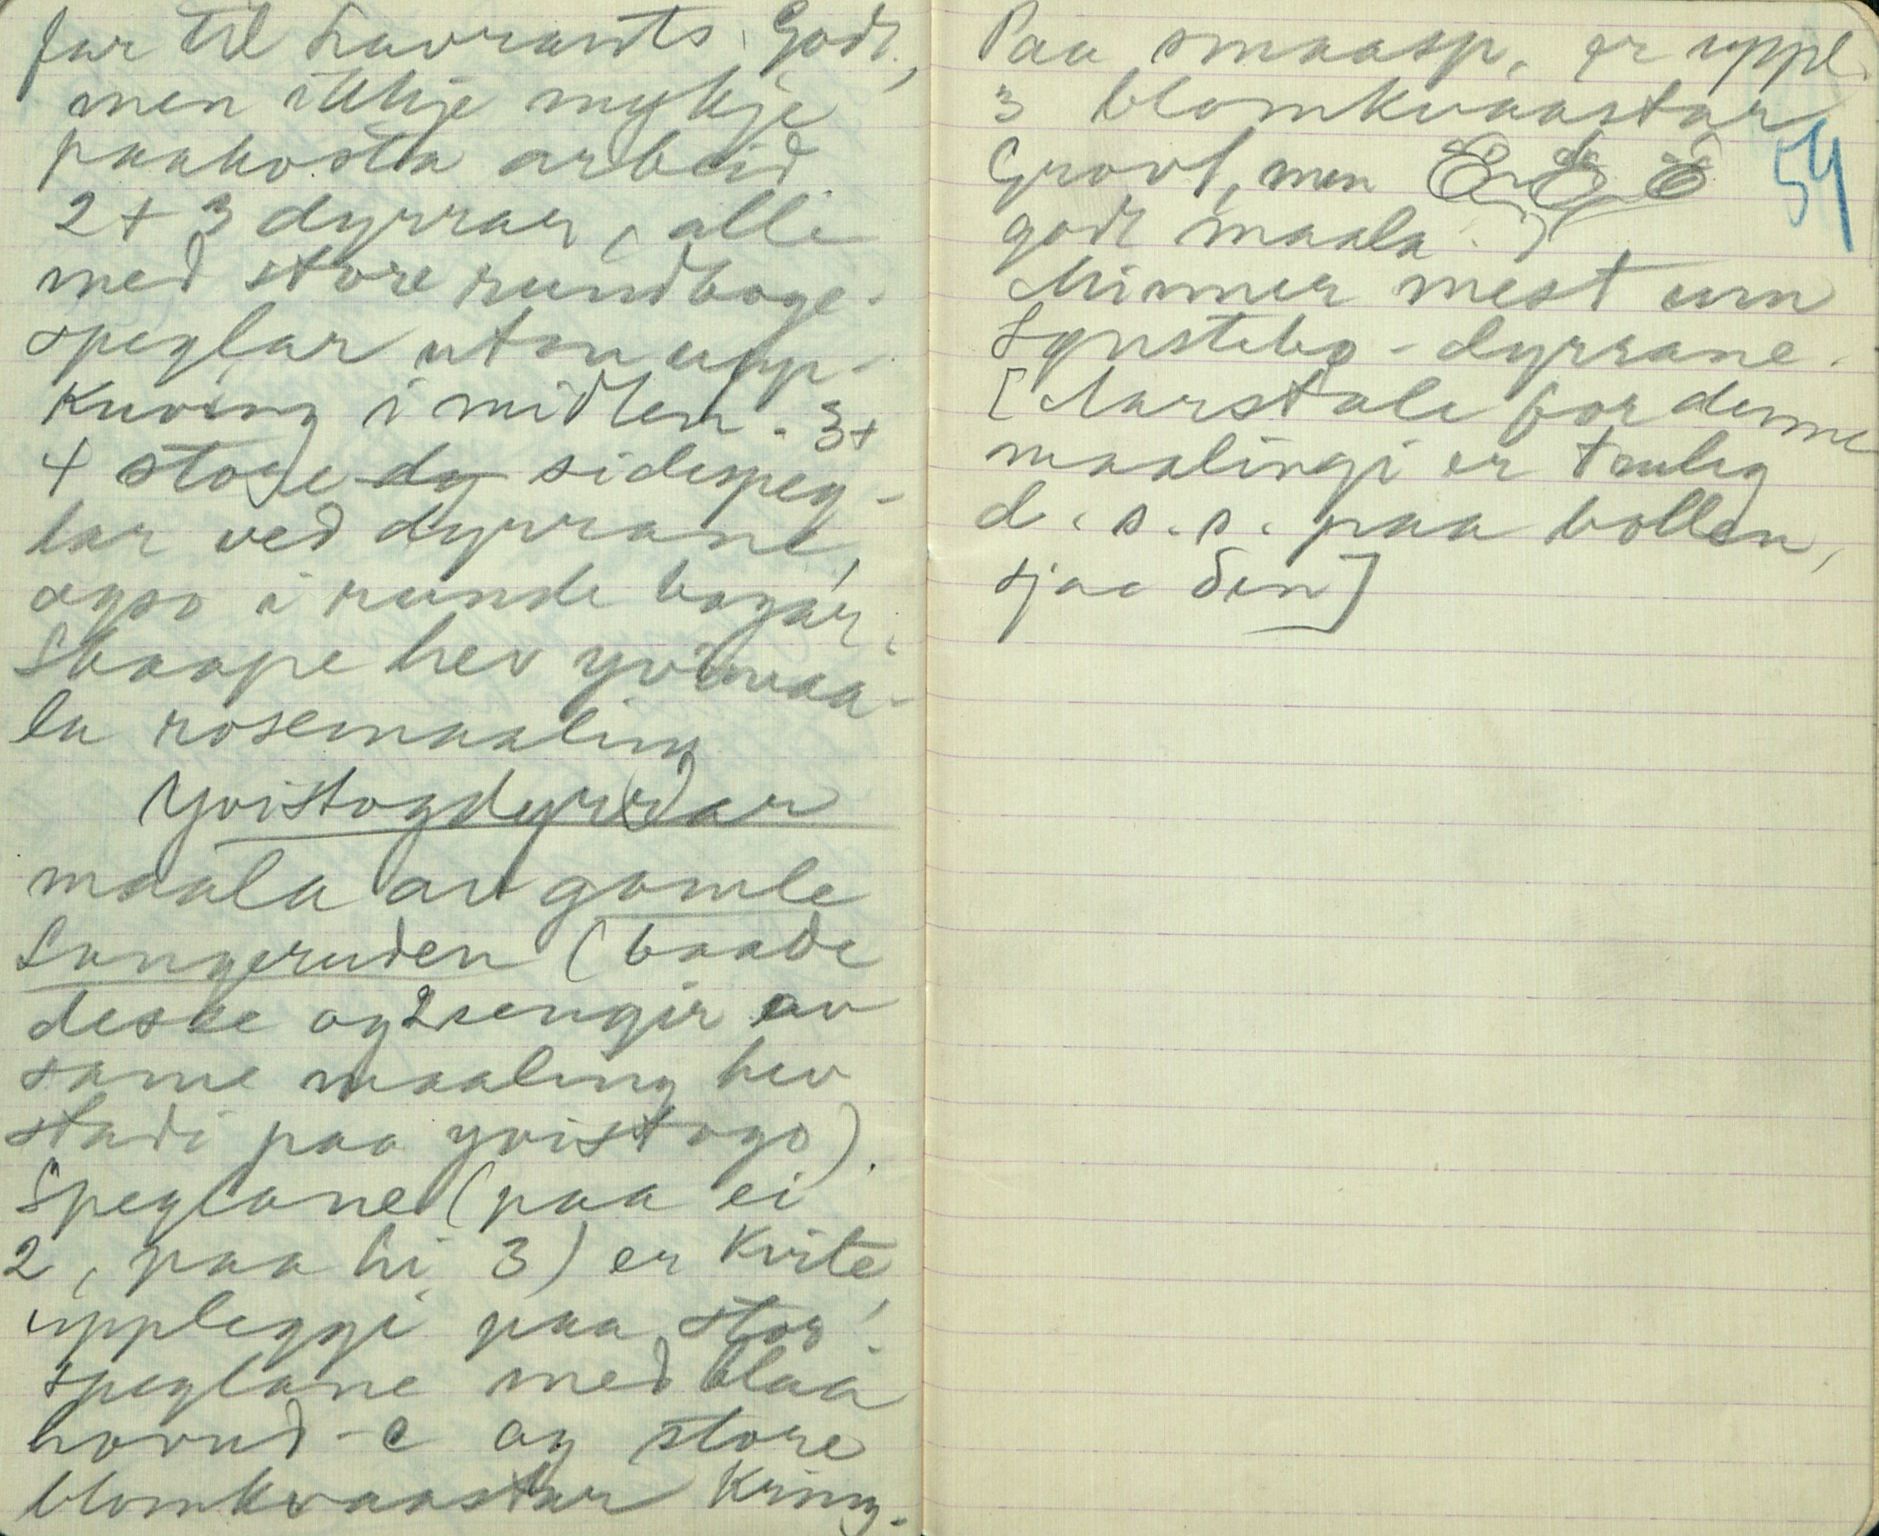 far til Lavrants. Godt,
men ikkje mykje
paakosta arbeid
2 + 3 dyrrar, alle
med store rundboge-
speglar uton upp-
kuving i midten. 3 +
4 store dy sidespeg-
lar ved dyrrane,
ogso i runde bogar.
Skaape hev yvimaa-
la rosemaaling
Yvistogdyrrar
maala av gamle
Langeruden (baade
deske og 2 sengir av
same maaling hev
stadi paa yvistogo).
Speglane (paa ei
2, paa hi 3) er kvite,
uppleggi paa stor-
speglane med blaa
hovud-C og store
blomkvaastar kring.
Paa smaasp. er uppl.
3 blomkvaastar
Grovt, men
godt maala.
Minner mest um
-dyrrane.
[Aarstale for denne
maalingi er truleg
d.s.s. paa bollen,
sjaa den]
54